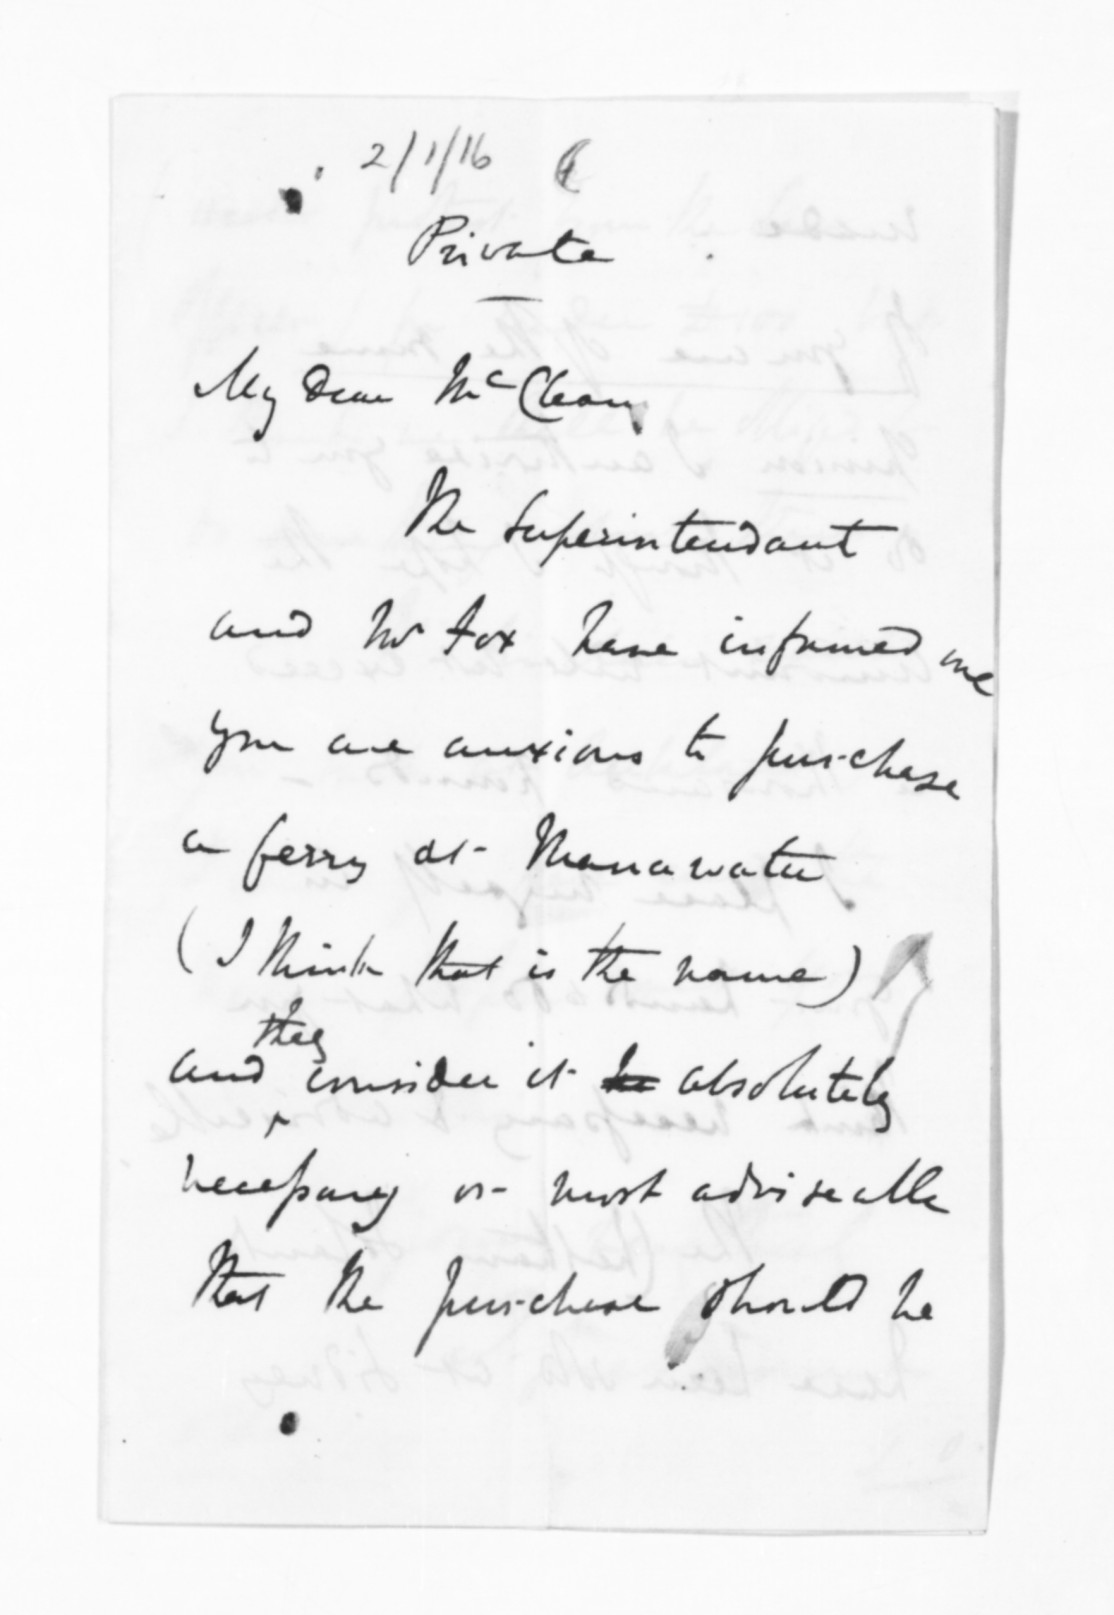 2/1/16
Private
My Dear McClean,
The Superintendant
and Mr Fox have informed me
you are anxious to purchase
a ferry at Manawatu
(I think that is the name)
and they consider it absolutely
necessary or most adviseable
that the purchase should be